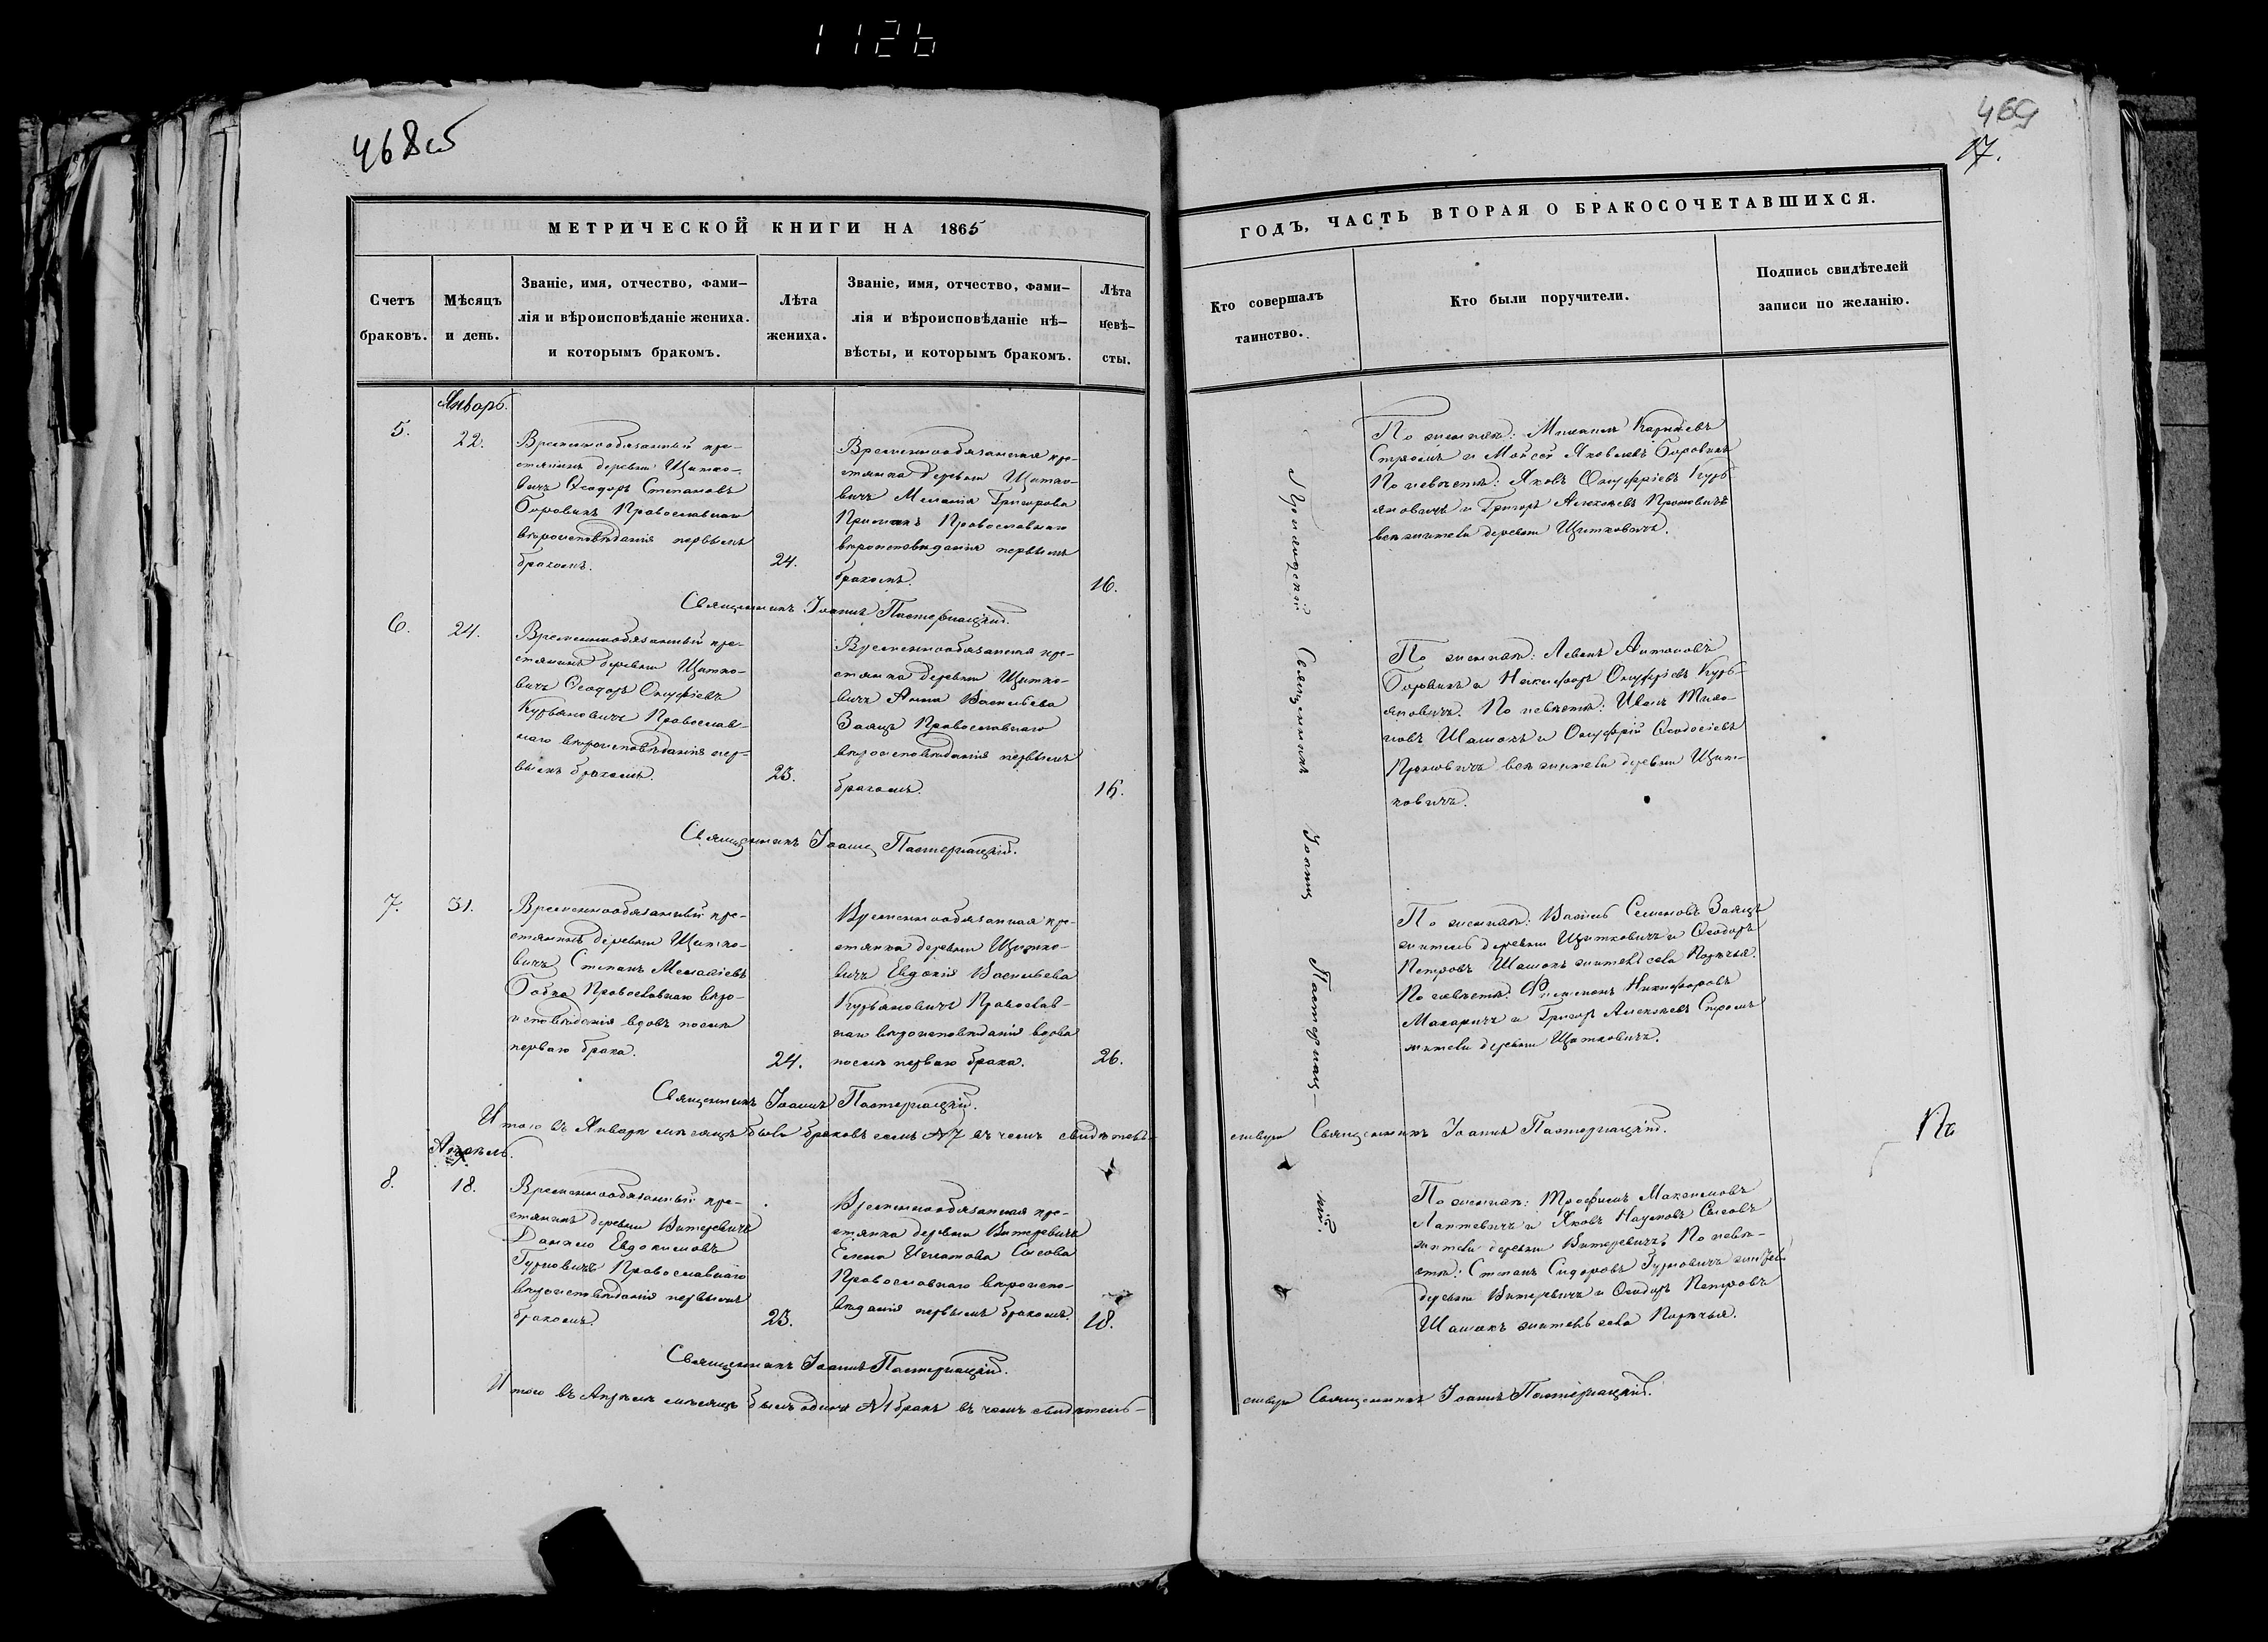 1126
468об
469
17.
МЕТРИЧЕСКОЙ КНИГИ НА 1865
ГОДЪ, ЧАСТЬ ВТОРАЯ О БРАКОСОЧЕТАВШИХСЯ.
Счетъ
браковъ.
Мѣсяцъ
и день.
Званіе, имя, отчество, фами-
лія и вѣроисповѣданіе жениха.
и которымъ бракомъ.
Лѣта
жениха.
Званіе, имя, отчество, фами-
лія и вѣроисповѣданіе нѣ-
вѣсты, и которымъ бракомъ.
Лѣта
невѣ-
сты.
Кто совершалъ
таинство.
Кто были поручители.
Подпись свидѣтелей
записи по желанію.
Январь.
5.
22.
Временнообязанный кре-
стянинъ деревни Щитко-
вичъ Ѳеодоръ Степановъ
Боровикъ Православнаго
вѣроисповѣданія первымъ
бракомъ.
24.
Временнообязанная кре-
стянка деревни Щитко-
вичъ Меланія Григорова
Православнаго
вѣроисповѣданія первымъ
бракомъ.
16.
По женихѣ: Михаилъ
и Мойсей Яковлевъ Боровикъ
По невѣстѣ: Яковъ Онуфріевъ Курь-
яновичъ и Григоръ Алексѣевъ
всѣ жители деревни Щитковичъ.
Священникъ Іоаннъ Пастернацкій.
6.
24.
Временнообязанный кре-
стянинъ деревни Щитко-
вичъ Ѳеодоръ Онуфріевъ
Курьяновичъ Православ-
наго вѣроисповѣданія пер-
вымъ бракомъ.
23.
Временнообязанная кре-
стянка деревни Щитко-
вичъ Анна Васильева
Заяцъ Православнаго
вѣроисповѣданія первымъ
бракомъ.
16.
По женихѣ: Леонъ Антоновъ
Боровикъ и Никифоръ Онуфріевъ Курь-
яновичъ. По невѣстѣ: Иванъ
Шашокъ и Онуфрій Ѳеодосіевъ
всѣ жители деревни Щит-
ковичъ.
Священникъ Іоаннъ Пастернацкій.
7.
31.
Временнообязанный кре-
стянинъ деревни Щитко-
вичъ Степанъ
Бобко Православнаго вѣро-
исповѣданія вдовъ послѣ
перваго брака.
24.
Временнообязанная кре-
стянка деревни Щитко-
вичъ Евдокія Васильева
Курьяновичъ Православ-
наго вѣроисповѣданія вдова
послѣ перваго брака.
26.
По женихѣ: Василь Семеновъ Заяцъ
житель деревни Щитковичъ и Ѳеодоръ
Петровъ Шашокъ житель села Порѣчья.
По невѣстѣ: Филимонъ Никифоровъ
Макаричъ и Григоръ Алексѣевъ
жители деревни Щитковичъ.
Священникъ Іоаннъ Пастернацкій.
Итого въ Январѣ мѣсяцѣ было браковъ семь №7 въ чемъ свидѣтель-
ствую Священникъ Іоаннъ Пастернацкій.
Священникъ Іоаннъ Пастернац-
кій.
Апрѣль.
8.
18.
Временнообязанный кре-
стянинъ деревни Витеревичъ
Данило Евдокимовъ
Гурновичъ Православнаго
вѣроисповѣданія первымъ
бракомъ.
23.
Временнообязанная кре-
стянка деревни Витеревичъ
Елена Игнатова Сысова
Православнаго вѣроиспо-
вѣданія первымъ бракомъ.
18.
По женихѣ: Трофимъ Максимовъ
Лаптевичъ и Яковъ Наумовъ Сысовъ
жители деревни Витеревичъ По невѣ-
стѣ: Степанъ Сидоровъ Гурновичъ житель
деревни Витеревичъ и Ѳеодоръ Петровъ
Шашокъ житель села Порѣчья.
Священникъ Іоаннъ Пастернацкій.
Итого въ Апрѣлѣ мѣсяцѣ былъ одинъ №1 бракъ въ чемъ свидѣтель-
ствую Священникъ Іоаннъ Пастернацкій.